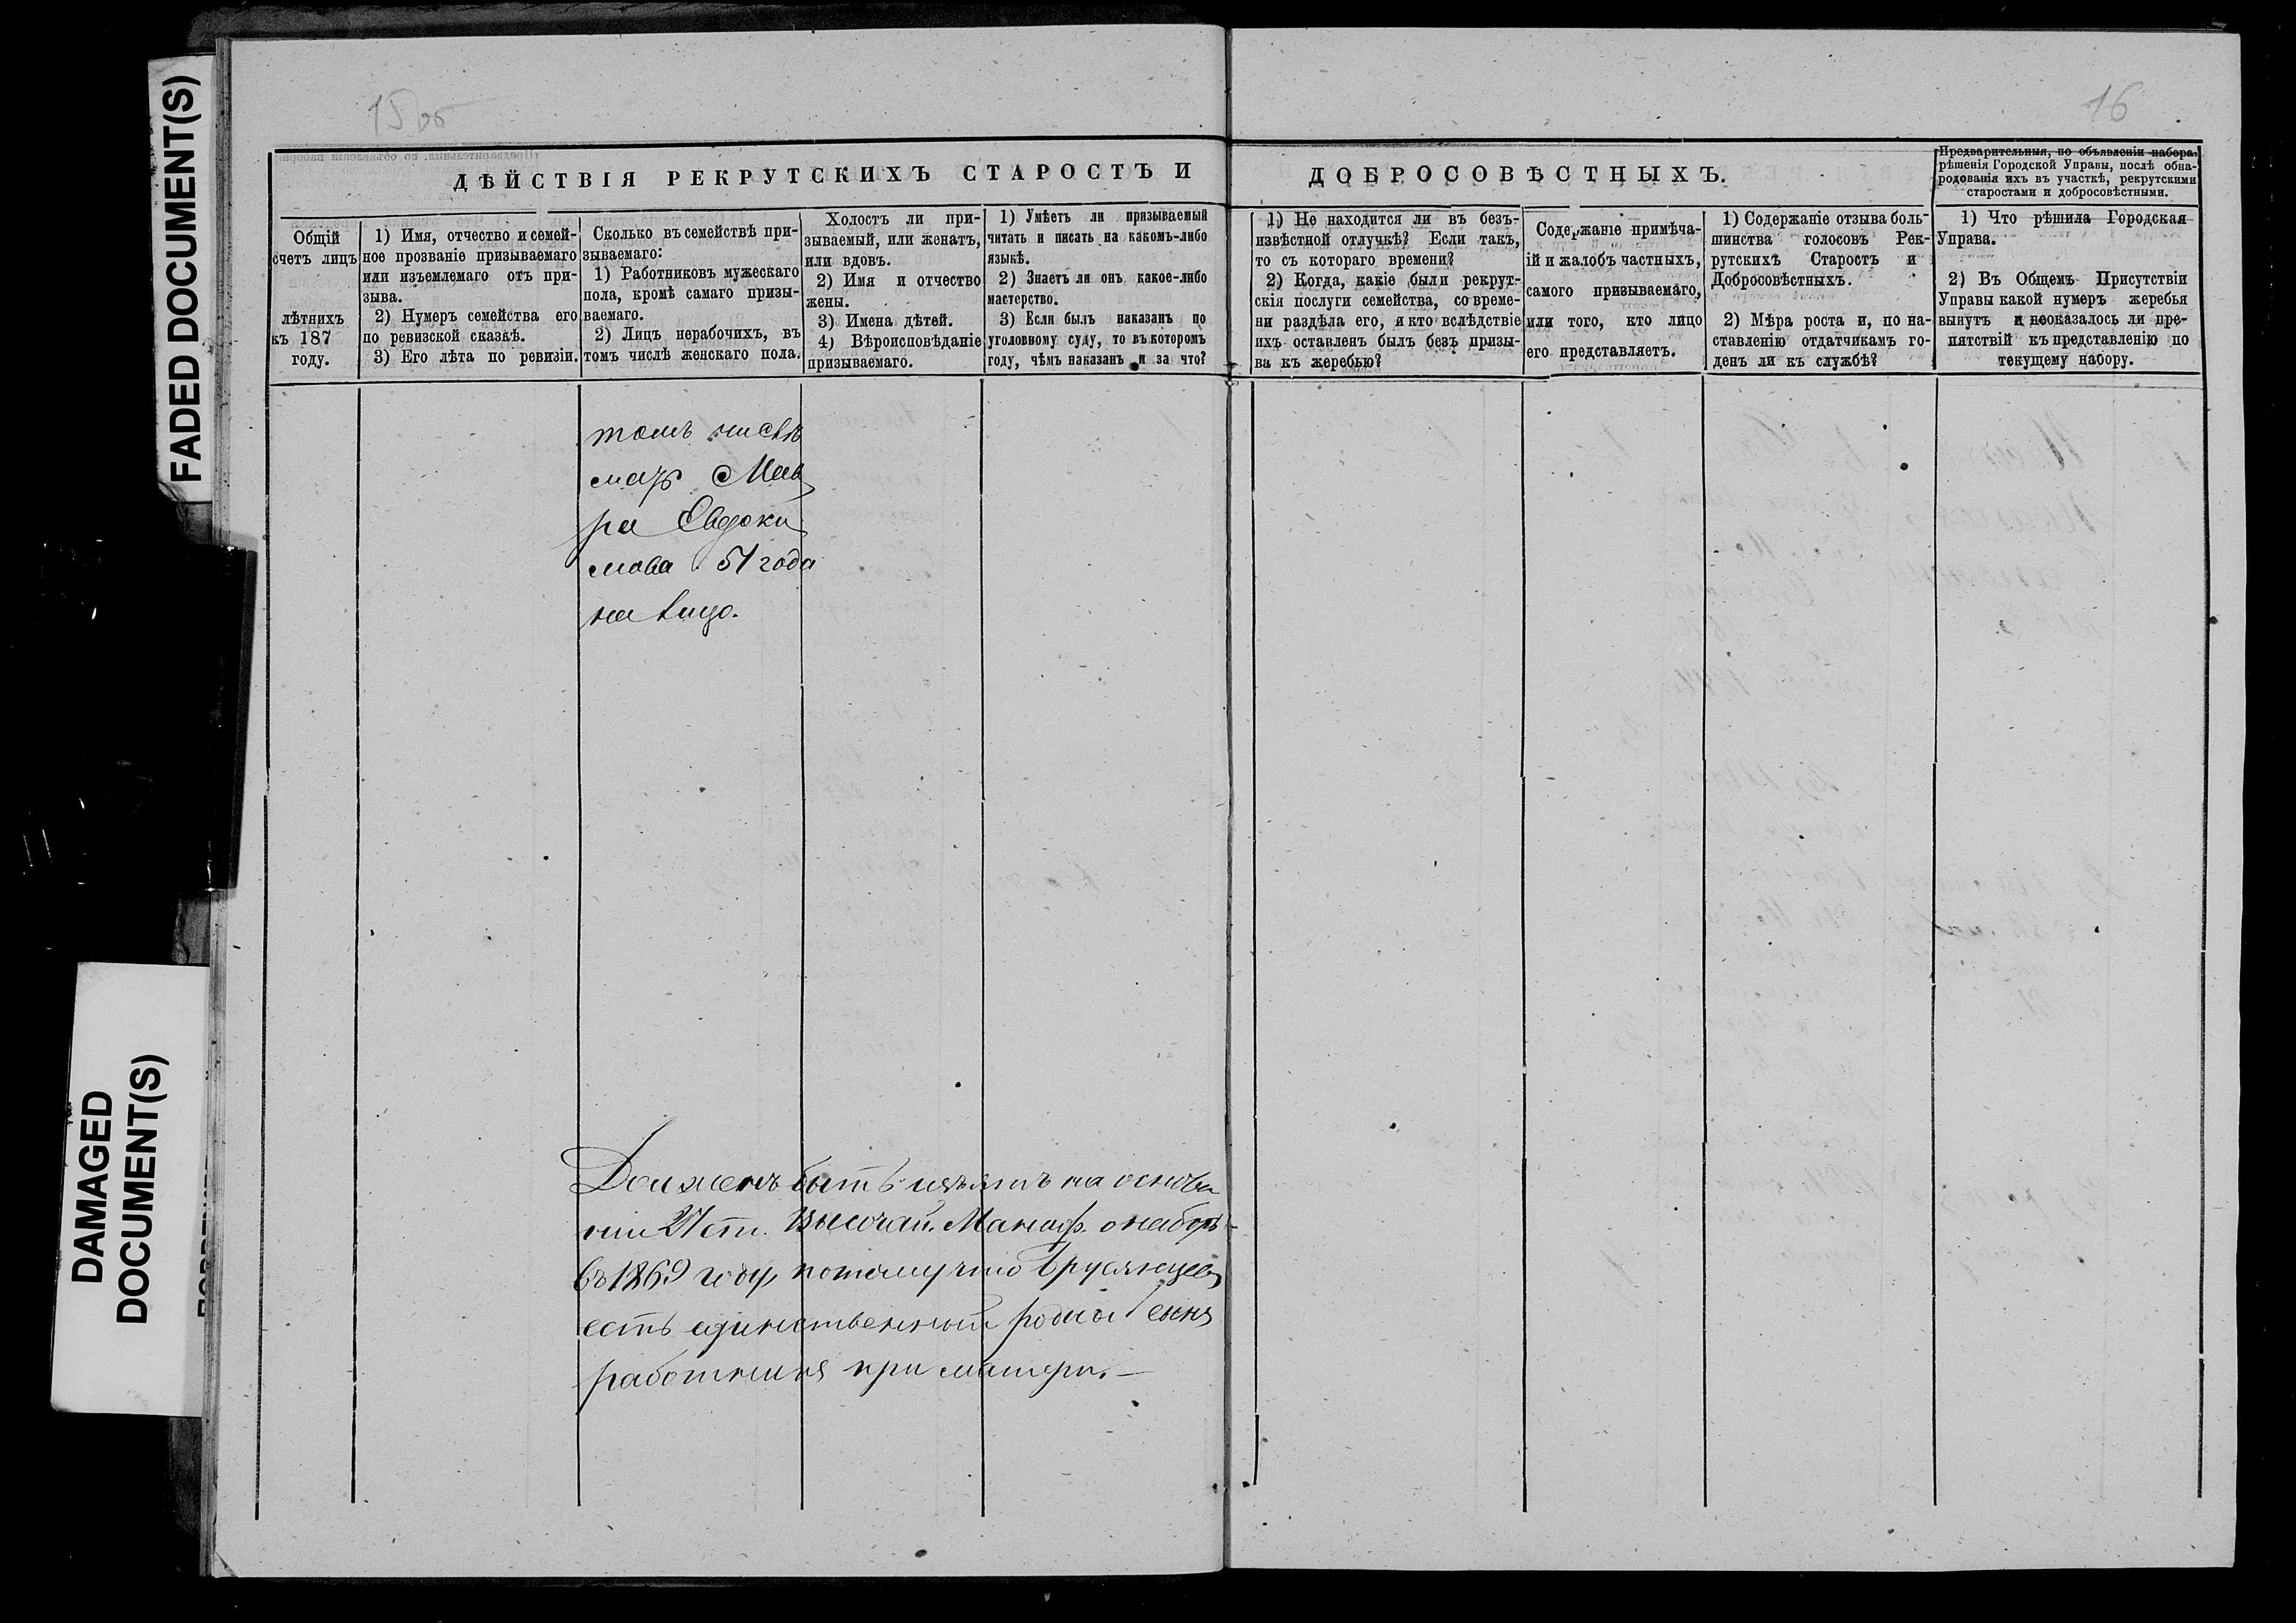 FADED DOCUMENT(S)
DAMAGED
DOCUMENT(S)
15 об
16
ДѢЙСТВІЯ РЕКРУТСКИХЪ СТАРОСТЪ И
ДОБРОСОВѢСТНЫХЪ.
Предварительныя, по объявленіи набора,
рѣшенія Городской Управы, послѣ обна-
родованія ихъ въ участкѣ, рекрутскими
старостами и добросовѣстными.
Общій
счетъ лицъ
лѣтнихъ
къ 187
году.
1) Имя, отчество и семей-
ное прозваніе призываемаго
или изъемлемаго отъ при-
зыва.
2) Нумеръ семейства его
по ревизской сказкѣ.
3) Его лѣта по ревизіи.
Сколько въ семействѣ при-
зываемаго:
1) Работниковъ мужескаго
пола, кромѣ самаго призы-
ваемаго.
2) Лицъ нерабочихъ, въ
томъ числѣ женскаго пола.
Холостъ ли при-
зываемый, или женатъ,
или вдовъ.
2) Имя и отчество
жены.
3) Имена дѣтей.
4) Вѣроисповѣданіе
призываемаго.
1) Умѣетъ ли призываемый
читать и писать на какомъ-либо
языкѣ.
2) Знаетъ ли онъ какое-либо
мастерство.
3) Если былъ наказанъ по
уголовному суду, то въ которомъ
году, чѣмъ наказанъ и за что?
1) Не находится ли въ безъ-
извѣстной отлучкѣ? Если такъ,
то съ котораго времени?
2) Когда, какіе были рекрут-
скія послуги семейства, со време-
ни раздѣла его, и кто вслѣдствіе
ихъ оставленъ былъ безъ призы-
ва къ жеребью?
Содержаніе примѣча-
ій и жалобъ частныхъ,
самого призываемаго,
или того, кто лицо
его представляетъ.
1) Содержаніе отзыва боль-
шинства голосовъ Рек-
рутскихъ Старостъ и
Добросовѣстныхъ.
2) Мѣра роста и, по на-
ставленію отдатчикамъ го-
денъ ли къ службѣ?
1) Что рѣшила Городская
Управа.
2) Въ Общемъ Присутствіи
Управы какой нумеръ жеребья
вынутъ и неоказалось ли пре-
пятствій къ представленію по
текущему набору.
томъ числѣ
мать Мав
ра Евдоки
мова 51 года
на лицо.
Долженъ быть изъятъ на основа
ніи 27 ст. Высочай. Маниф. о наборѣ
въ 1869 году, потому что
есть единственный родной сынъ
работникъ при матери.—